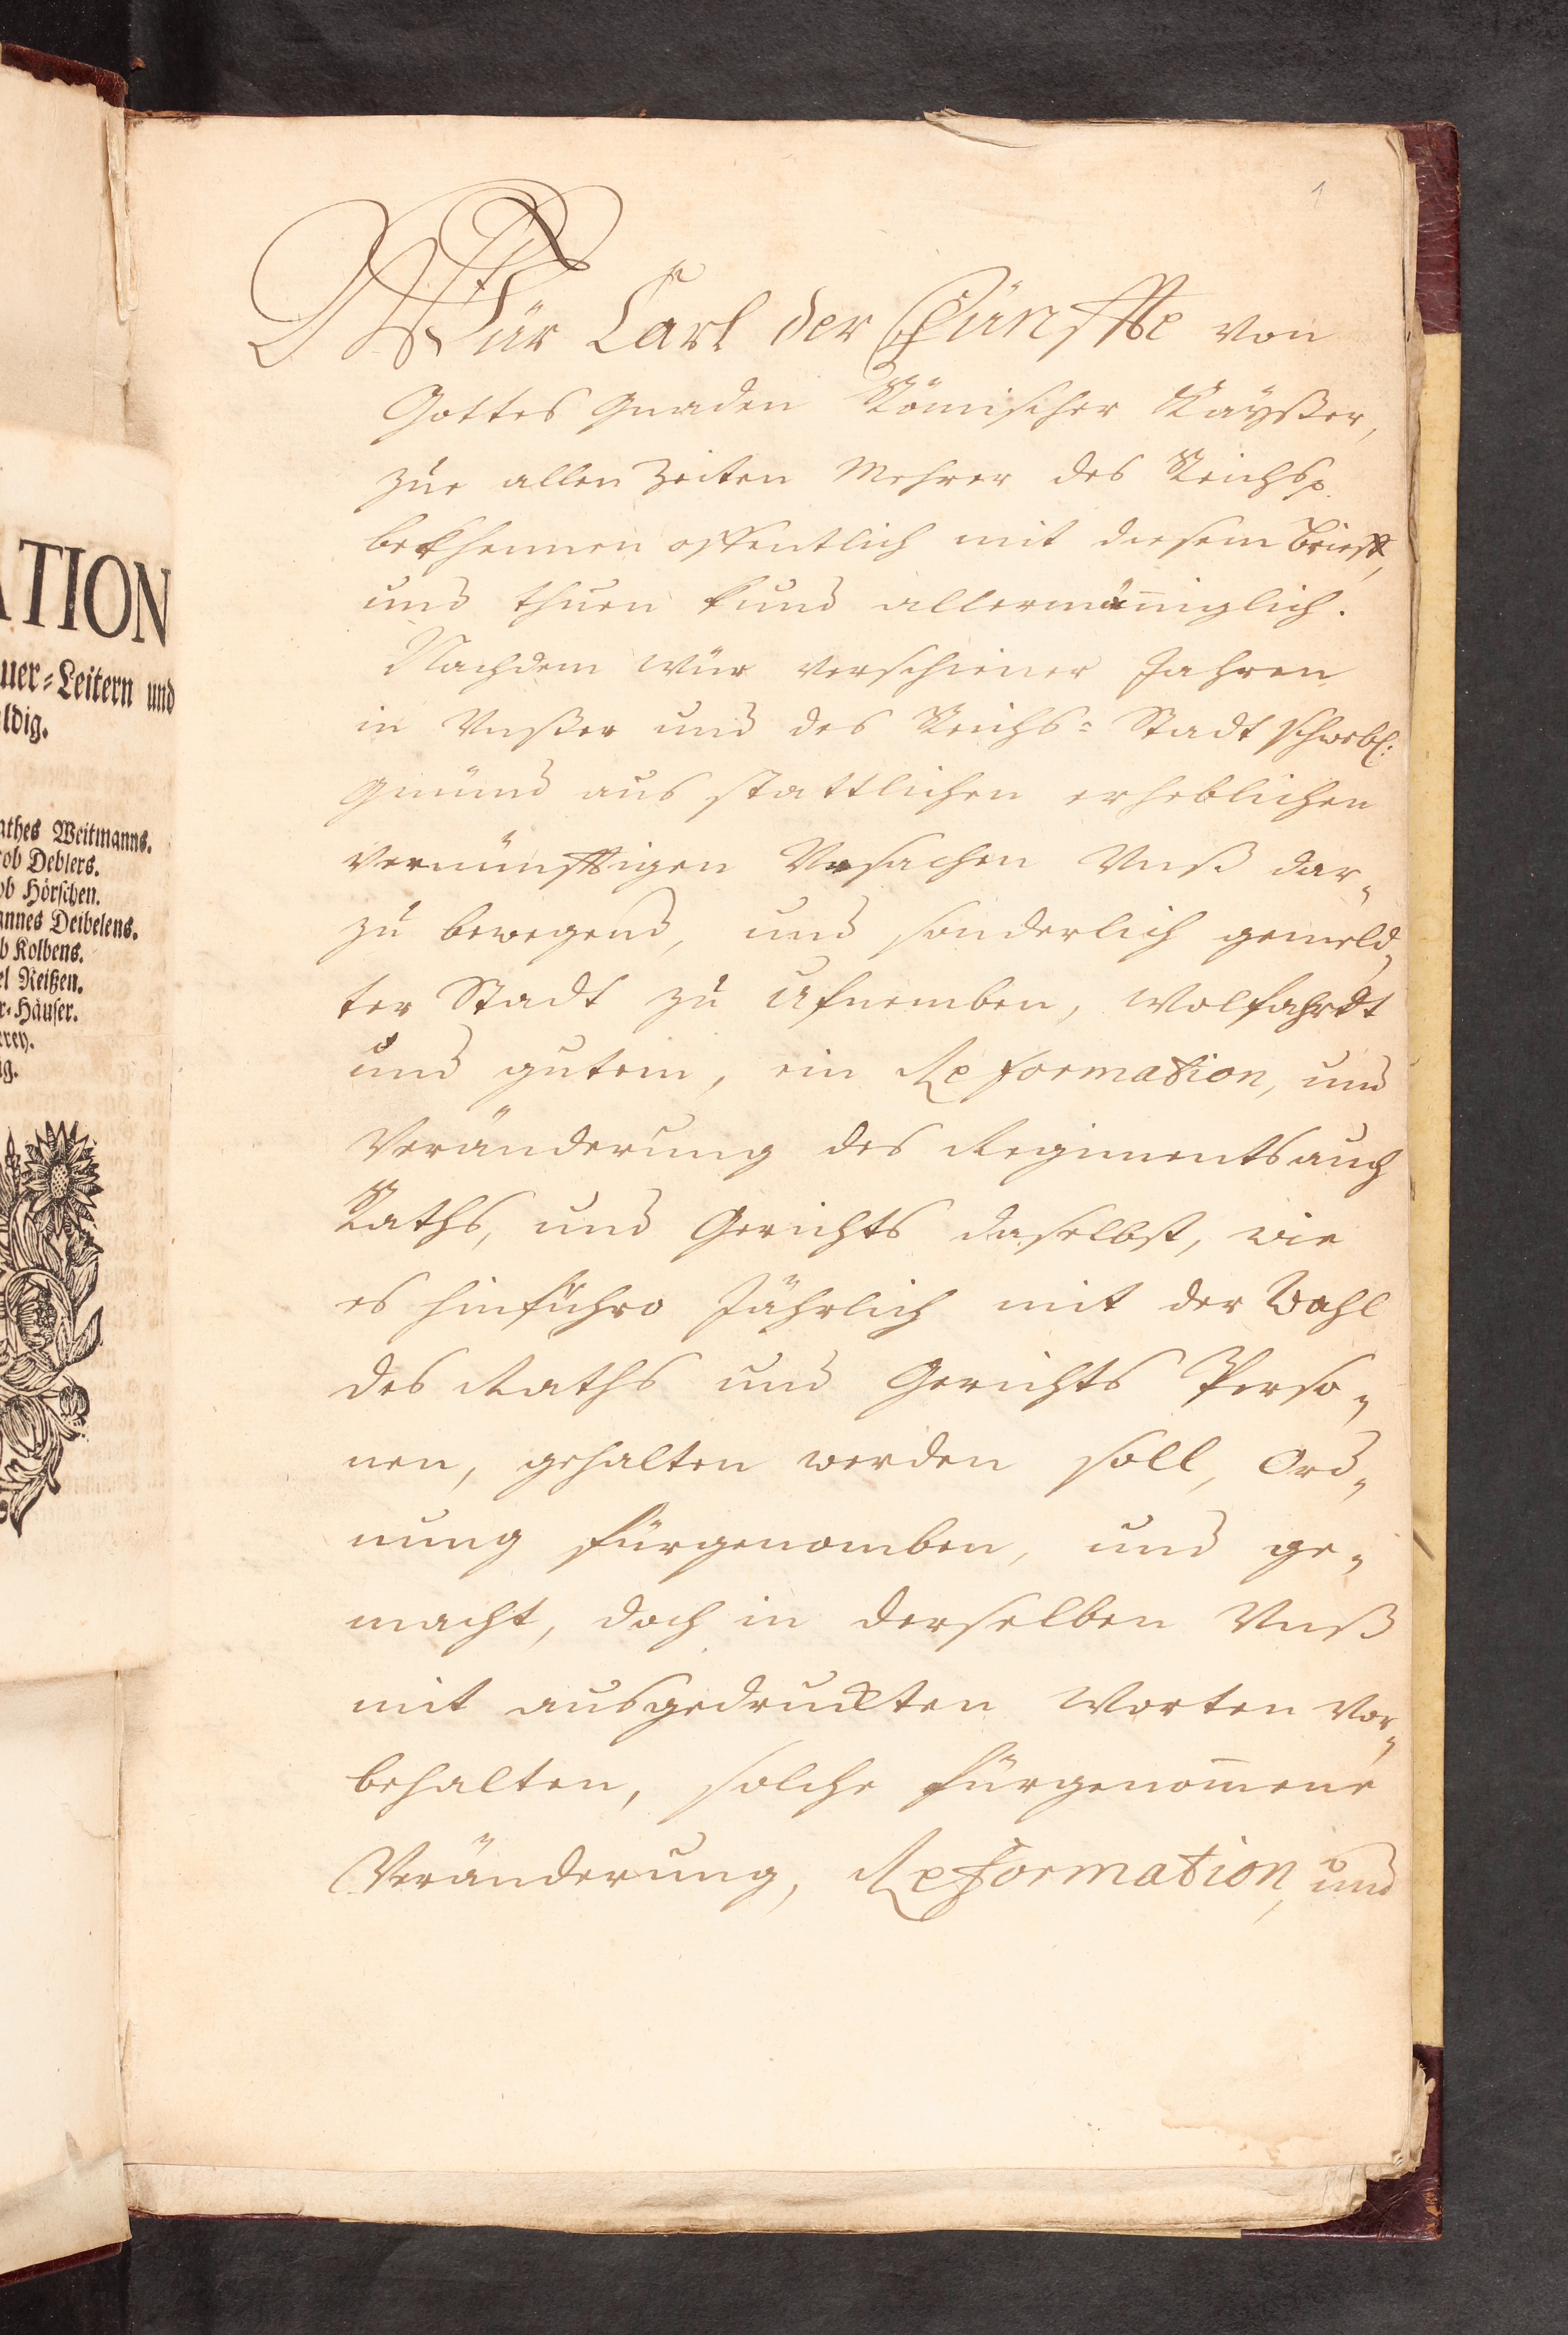 1
Wür Carl der Fünffte von
Gottes Gnaden Römischer Kaÿßer,
zue allen Zeiten Mehrer des Reichs p.
bekhennen offentlich mit diesem brieff,
und thuen kund allermäniglich.
Nachdem wür verschiener Jahren
in Vnßer und des Reichs= Stadt schwebl:
gmünd aus stattlichen erheblichen
vernünfftigen Vrsachen Vnß dar„
zu bewegend, und sonderlich gemeld„
ter Stadt zu Ufnemben, Wolfahrdt
und gutem, ein Reformation, und
Veränderung des Regiments auch
Raths, und Gerichts daselbst, wie
es hinführo Jährlich mit der Wahl
des Raths und Gerichts Perso„
nen, gehalten werden soll, Ord„
nung fürgenomben, und ge„
macht, doch in derselben Vnß
mit ausgedruckten Worten vor„
behalten, solche fürgenom̄ene
Veränderung, Reformation, und
ATION
uer=Leitern und
ldig.
athes Weitmanns.
ob Deblers.
ob Hörschen.
annes Deibelens.
b Kolbens.
el Reißen.
r=Häuser.
erey.
ig.